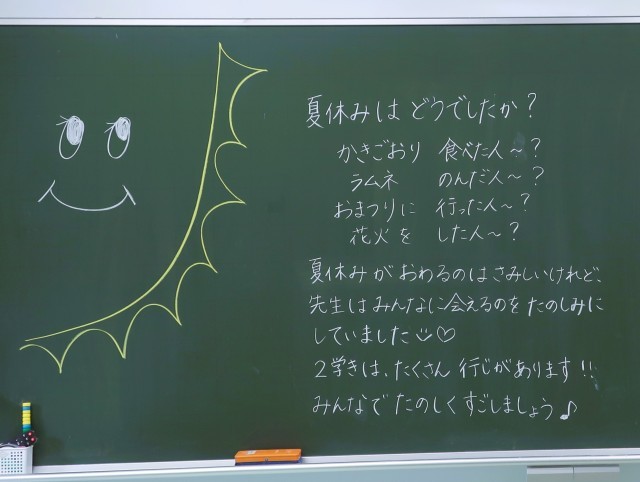 夏休みは どうでしたか？
かきごおり 食べた人～？
ラムネ のんだ人～？
おまつりに 行った人～？
花火を した人～？
夏休みがおわるのはさみしいけれど、
先生はみんなに会えるのをたのしみに
していました♡
2学きは、たくさん行じがあります!!
みんなでたのしくすごしましょう♪